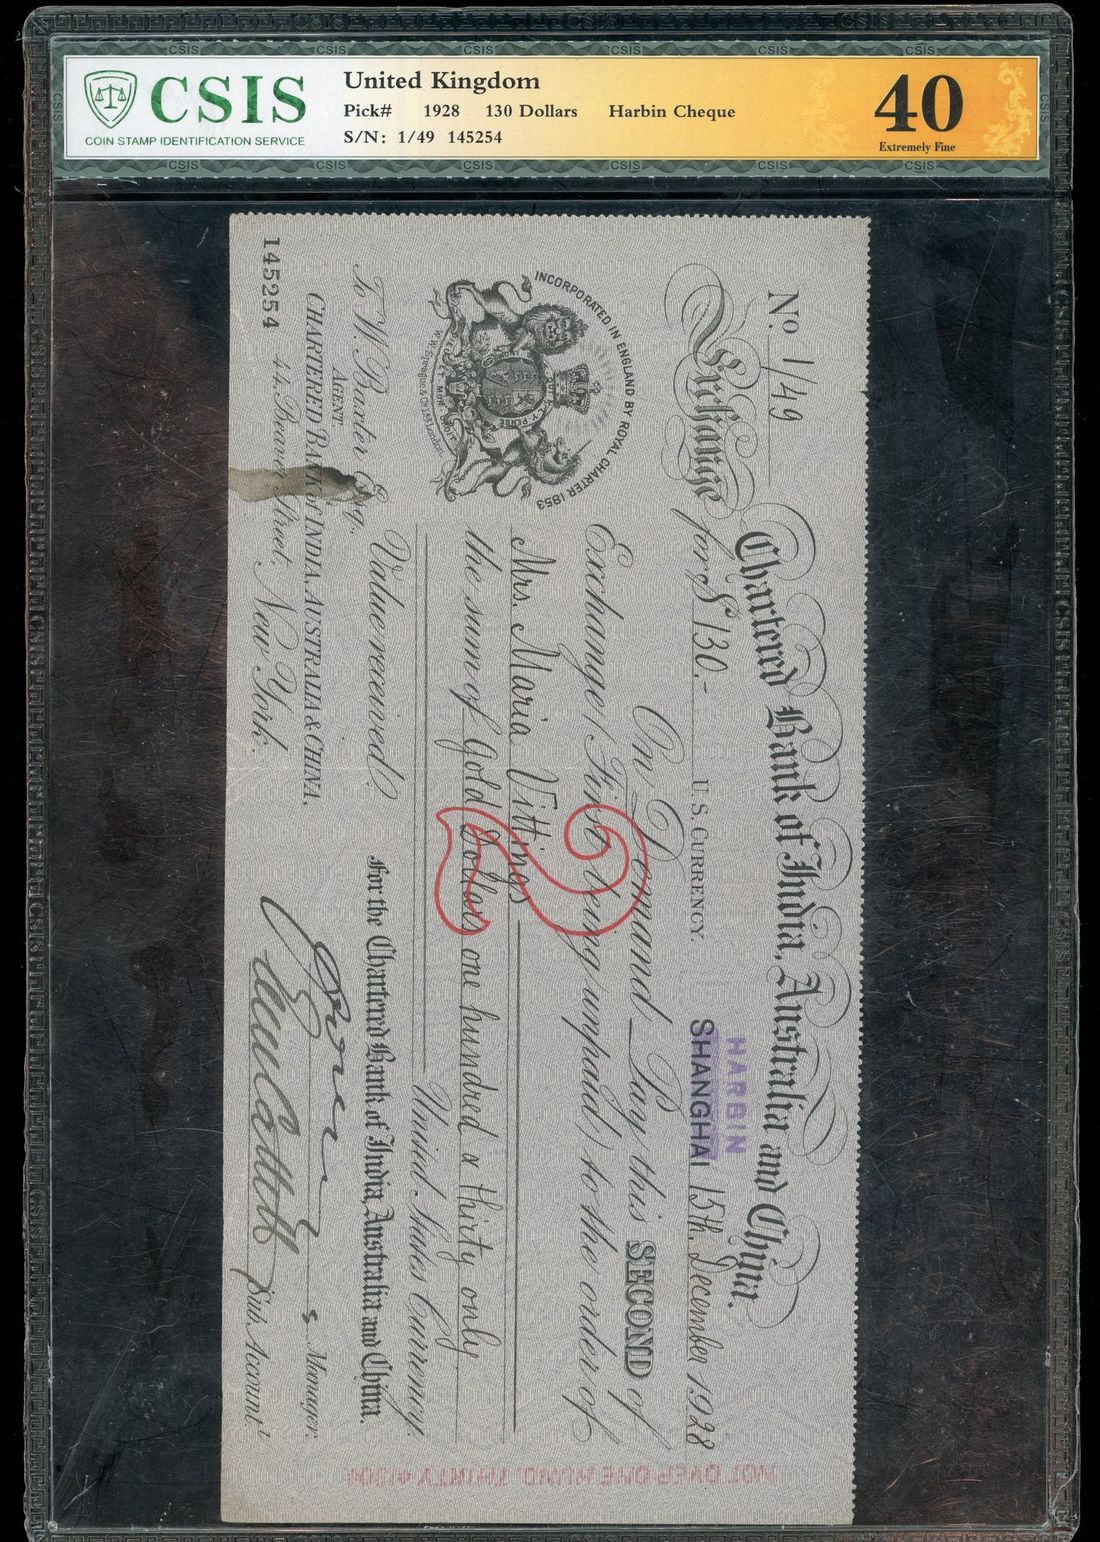 CSIS
COIN STAMP IDENTIFICATION SERVICE
United Kingdom
Pick# 1928 130 Dollars Harbin Cheque
S/N: 1/49 145254
40
Extremely Fine
Chartered Bank of India, Australia and China.
No. 1/49
HARBIN
SHANGHAI 15th December 1928
Exchange for $ 130.- U.S. CURRENCY.
INCORPORATED IN ENGLAND BY ROYAL CHARTER 1853
On Demand Pay this SECOND of
Exchange (First being unpaid) to the order of
Mrs. Maria Vittings
the sum of Gold Dollars one hundred & thirty only
United States Currency.
Value received.
2
For the Chartered Bank of India, Australia and China.
To W. Baxter Esq.
AGENT
CHARTERED BANK of INDIA, AUSTRALIA & CHINA.
44, Beaver Street, New York.
Manager.
Sub. Accountt
145254
NOT OVER ONE HUND. THIRTY